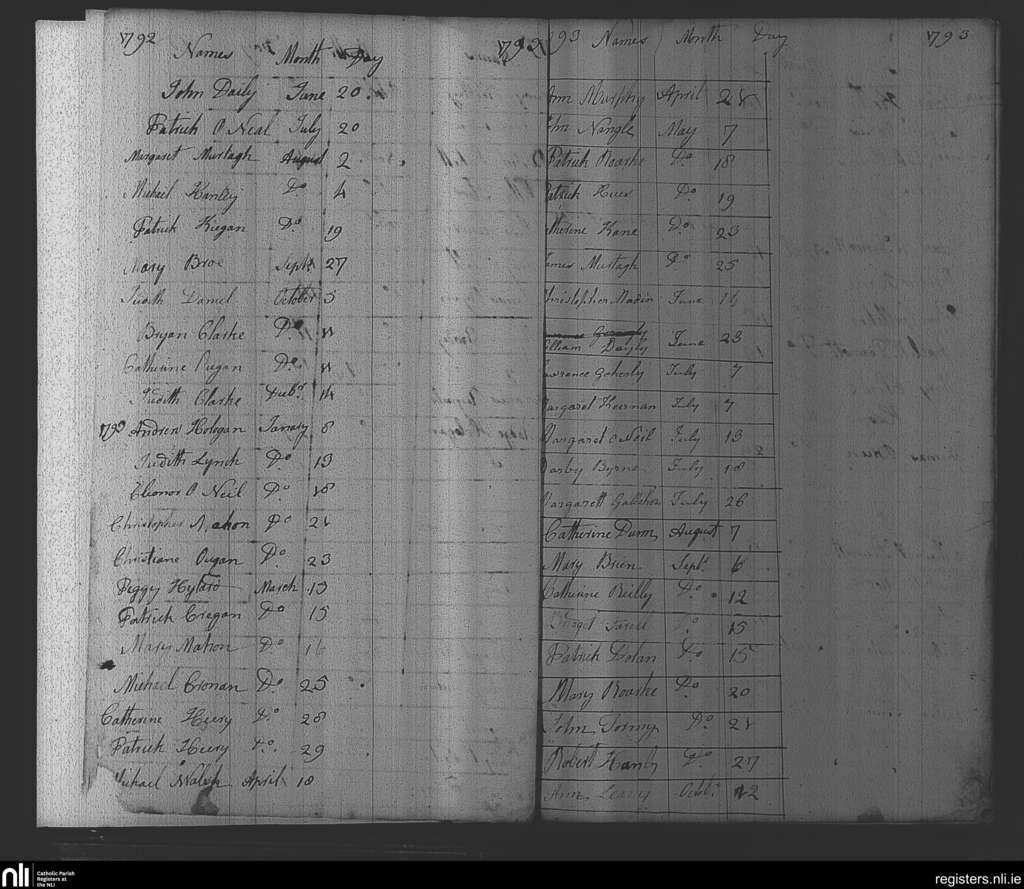 1792
Names Month Day
John Daily June 20
Patrick O Neal July 20
Margaret Murtagh August 2
Michael Hanley Do 4
Patrick Kiegan Do 19
Mary Broe Septr 27
Judith Daniel October 5
Bryan Clarke Do 11
Catherine Do 11
Judith Clarke 14
1793 Andrew Hologan Janary 8
Judith Lynch Do 13
Eleonor O Neil Do 18
Christopher Mahon Do 21
Christiane Do 23
Peggy Hyland March 13
Patrick Cregan Do 15
Mary Mahon Do 16
Michael Cronan Do 25
Catherine Heery Do 28
Patrick Heery Do 29
Michael Walsh April 18
1792
93 Names Month Day 1793
Ann Murphy April 28
John Nangle May 7
Patrick Roarke Do 18
Patrick Do 19
Catherine Kane Do 23
James Murtagh Do 25
Christopher June 16
William Dayly June 23
Lawrance Gaherty July 7
Margaret Keernan July 7
Margaret O Neil July 13
Darby Byrne July 18
Margarett July 26
Catherine Dunn August 7
Mary Brien Septr 6
Catherine Reilly Do 12
Bridget Do 15
Patrick Dolan Do 15
Mary Roarke Do 20
John Do 21
Robert Hanly Do 27
Ann Leavy Octbr 12
nli
Catholic Parish
Registers at
the NLI
registers.nli.ie